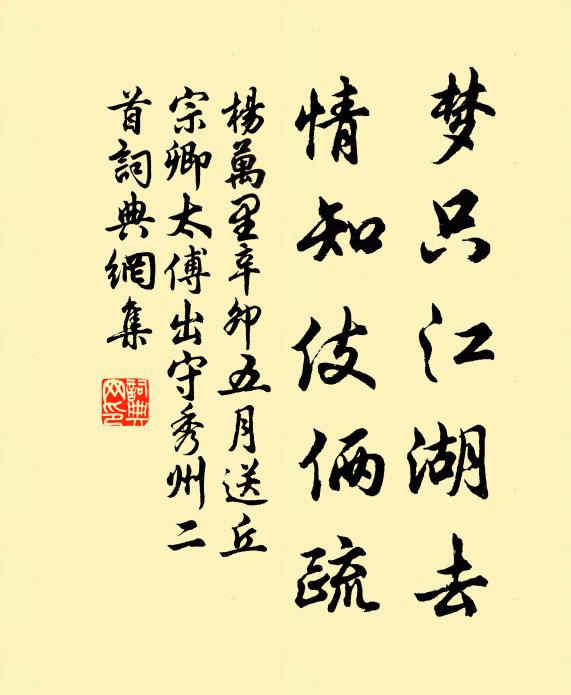 梦只江湖去
情知伎俩疏
楊萬里辛卯五月送丘
宗卿太傅出守秀州二
首詞典網集
詞典網印